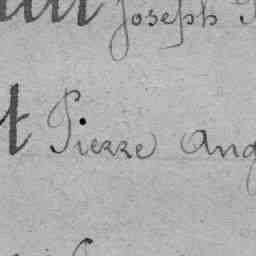 Joseph
t Pierre Ang